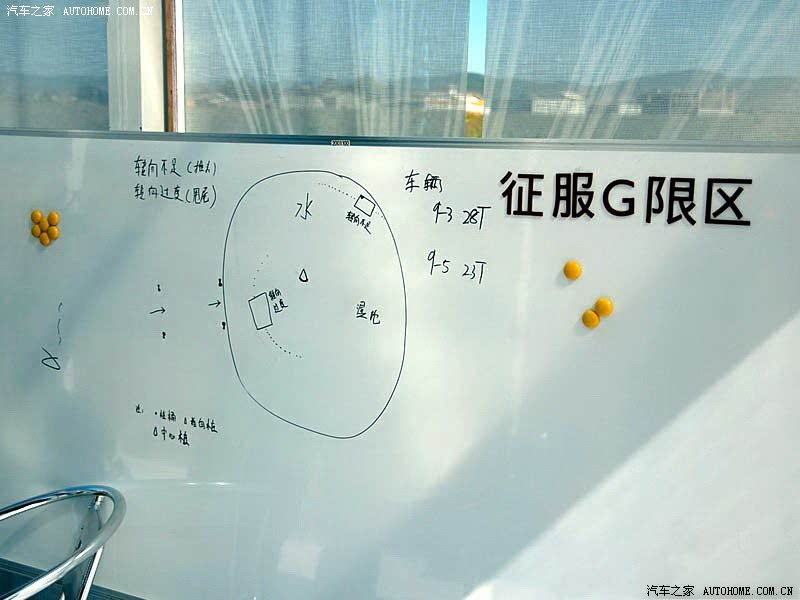 汽车之家 AUTOHOME.COM.CN
转向不足(推头)
转向过度(甩尾)
水
转向不足
车辆
9-3 28T
9-5 23T
征服G限区
转向
过度
湿地
注:
中心桩
汽车之家 AUTOHOME.COM.CN